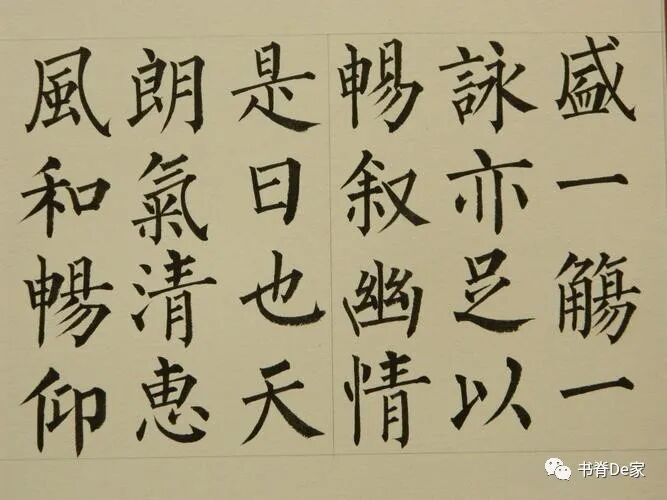 盛一觴一
詠亦足以
暢叙幽情
是日也天
朗氣清恵
風和暢仰
书脊De家